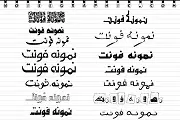 نمونه فونت
نمونه فونت
نمونه فونت
نمونه فونت
نمونه فونت
نمونه فونت
نمونه فونت
نمونه فونت
نمونه فونت
نمونه فونت
نمونه فونت
نمونه فونت
نمونه فونت